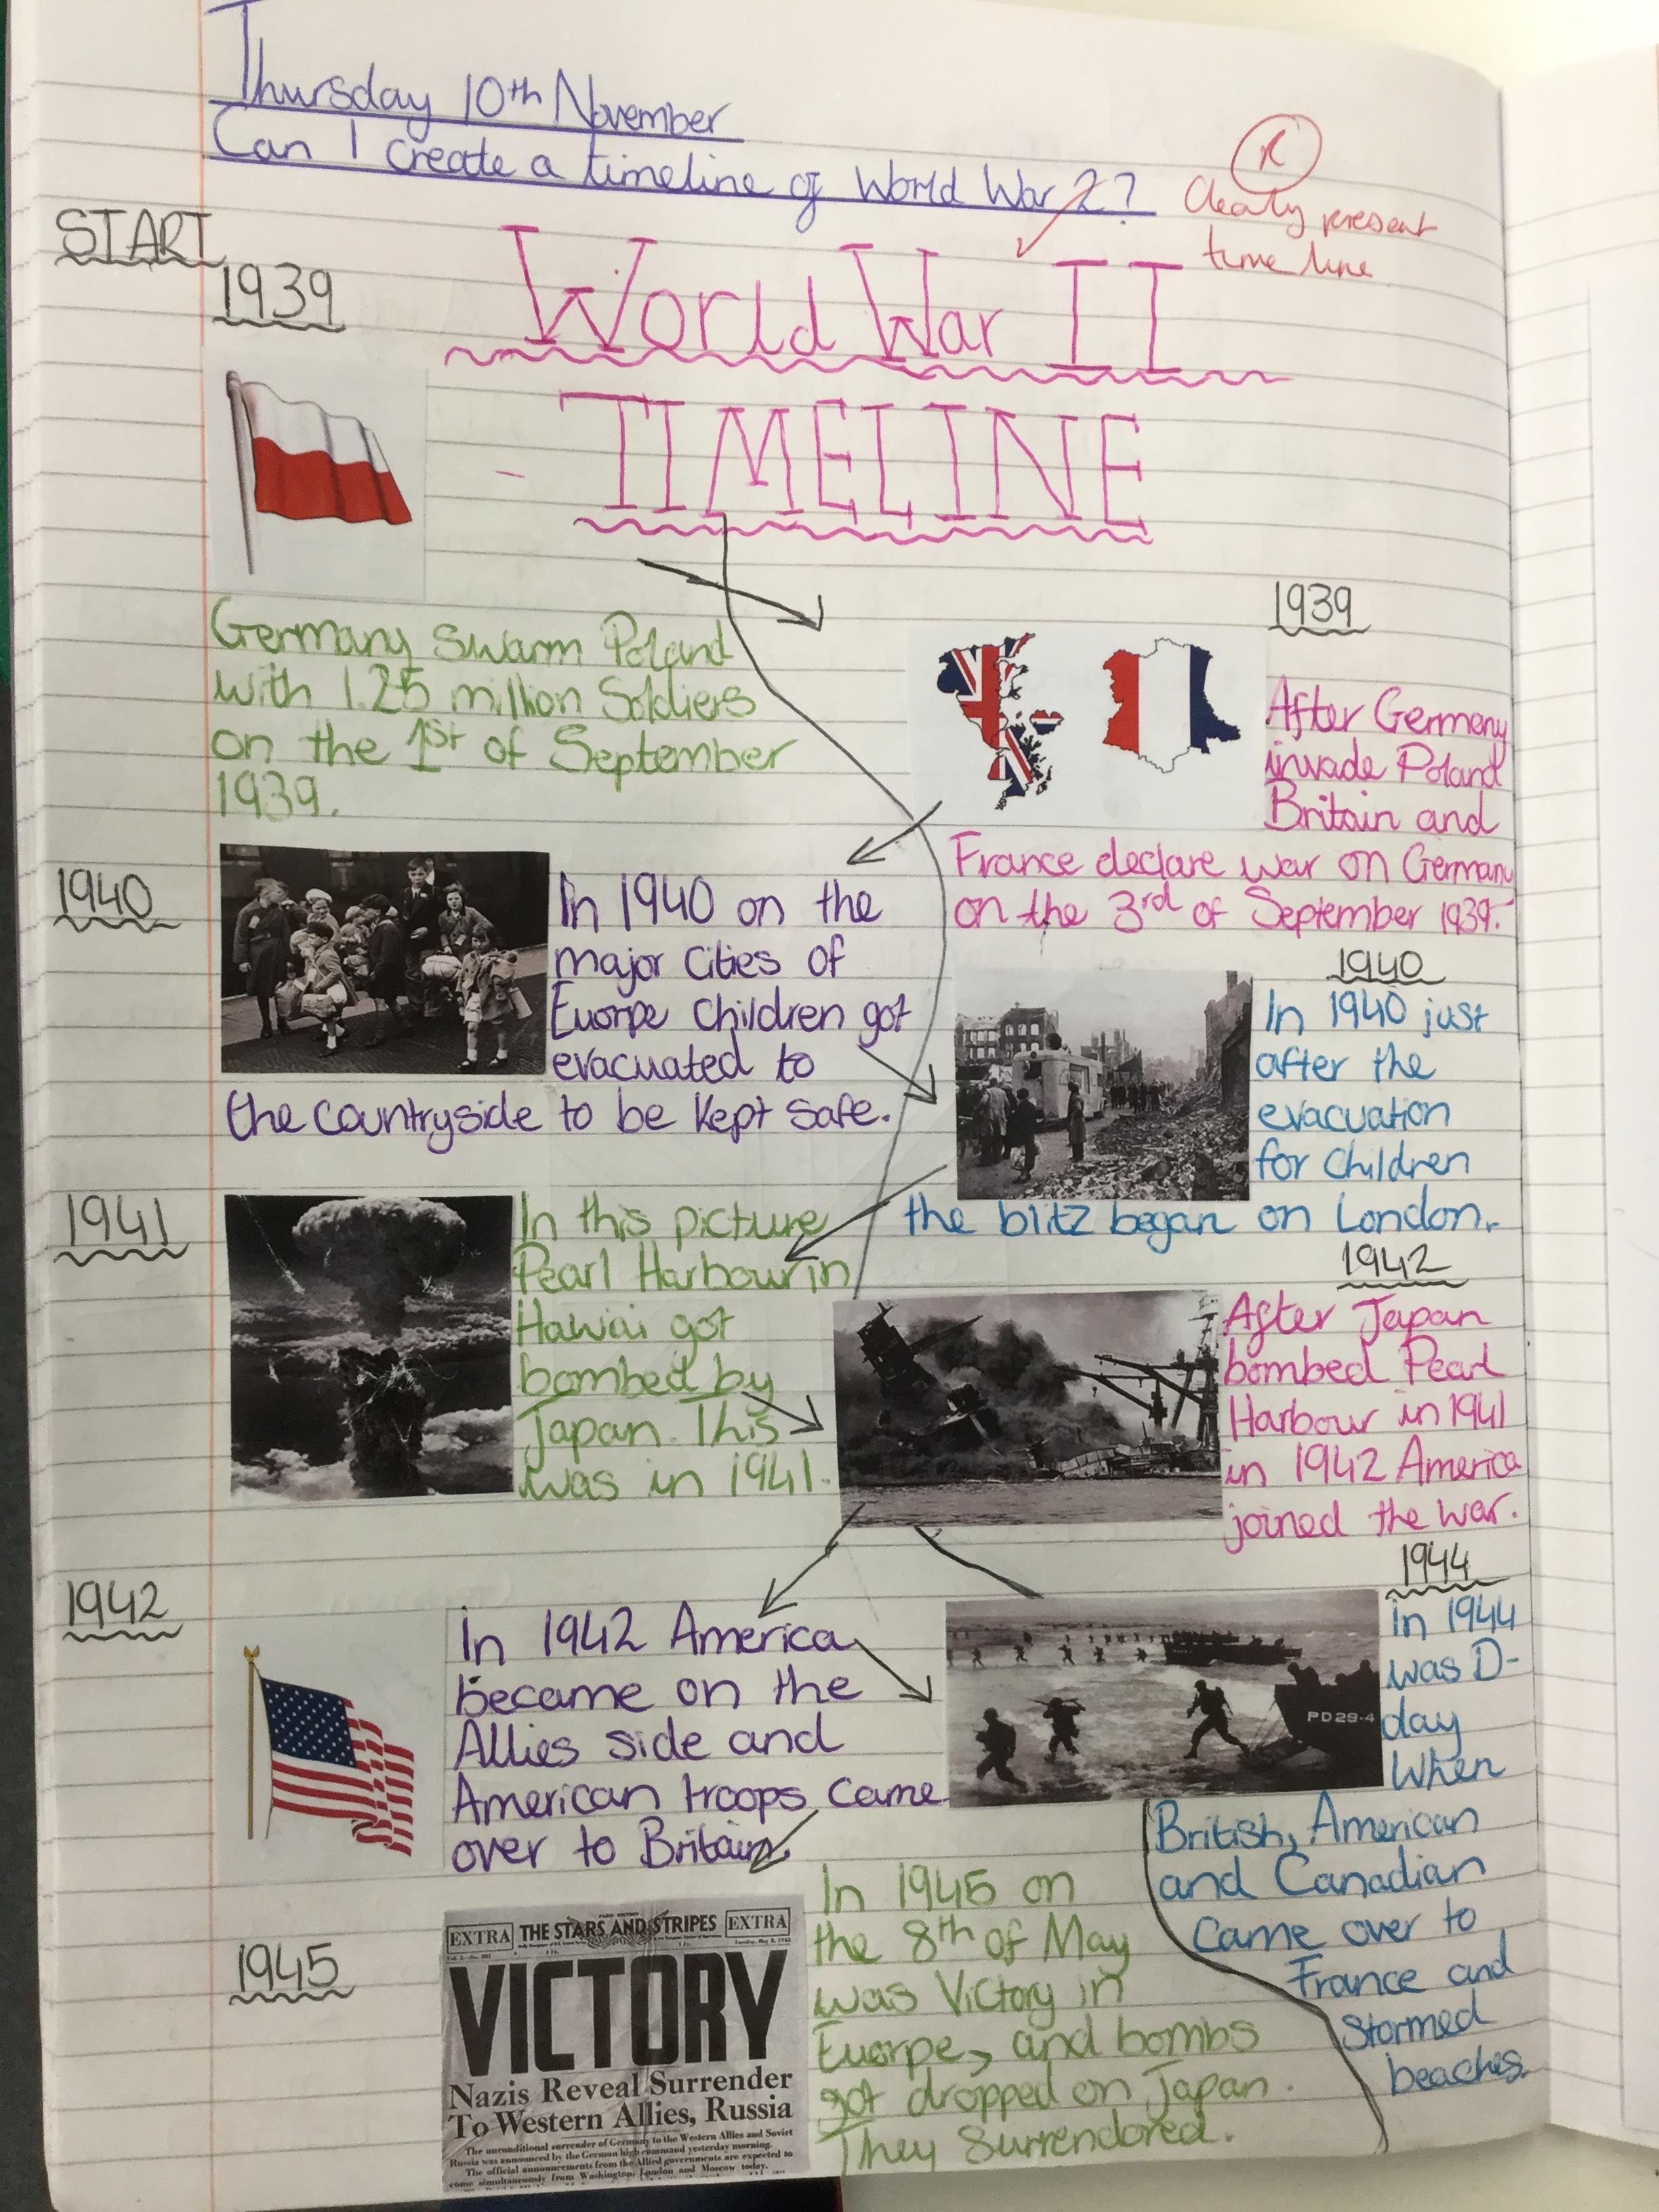 Thursday 10th November
Can I create a timeline of World War 2?
Clearly present
time line
START
1939
World War II
TIMELINE
Germany swarm Poland
with 1.25 million Soldiers
on the 1st of September
1939.
1939
After Germany
invade Poland
Britain and
France declare war on Germany
on the 3rd of September 1939.
1940
In 1940 on the
major cities of
Euorpe children got
evacuated to
the countryside to be kept safe.
1940
In 1940 just
after the
evacuation
for children
the blitz began on London.
1941
In this picture
Pearl Harbour in
Hawai got
bombed by
Japan. This
was in 1941.
1942
After Japan
bombed Pearl
Harbour in 1941
in 1942 America
joined the war.
1942
In 1942 America
became on the
Allies side and
American troops came
over to Britain.
1944
in 1944
was D-
day
when
British, American
and Canadian
came over to
France and
stormed
beaches.
PD29-4
1945
EXTRA THE STARS AND STRIPES EXTRA
VICTORY
Nazis Reveal Surrender
To Western Allies, Russia
The unconditional surrender of Germany to the Western Allies and Soviet
Russia was announced by the German high command yesterday morning.
The official announcements from the Allied governments are expected to
come simultaneously from Washington, London and Moscow today.
In 1945 on
the 8th of May
was Victory in
Euorpe, and bombs
got dropped on Japan.
They Surrendored.